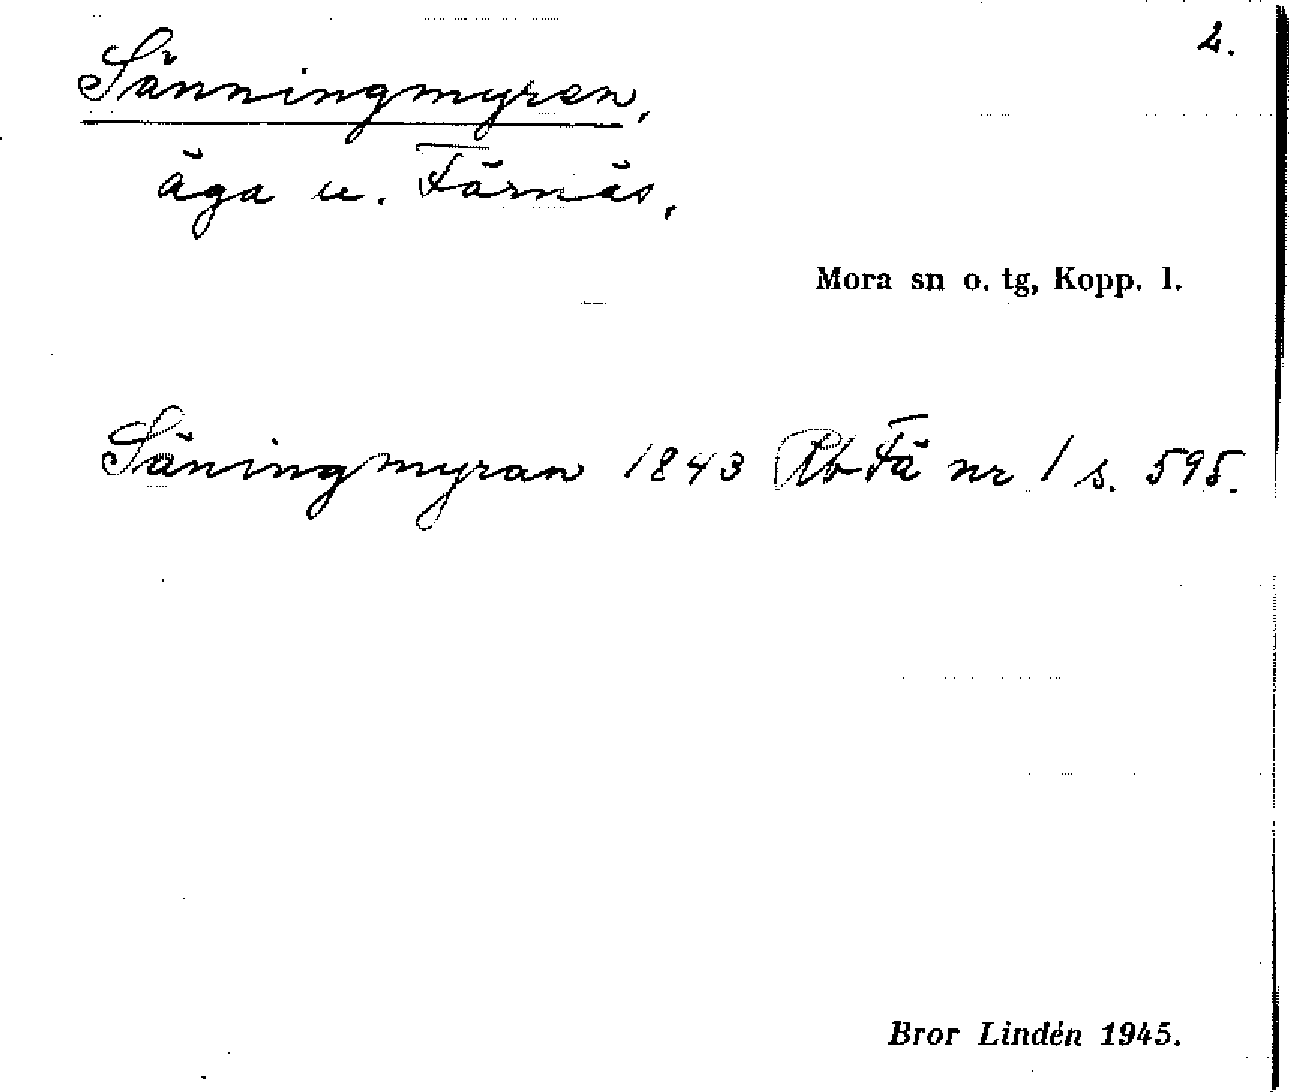 2.
Sänningmyran,
äga u. Färnäs,
Mora sn o. tg, Kopp. l.
Säningmyran 1843 Rb Fä nr 1 s. 595.
Bror Lindén 1945.